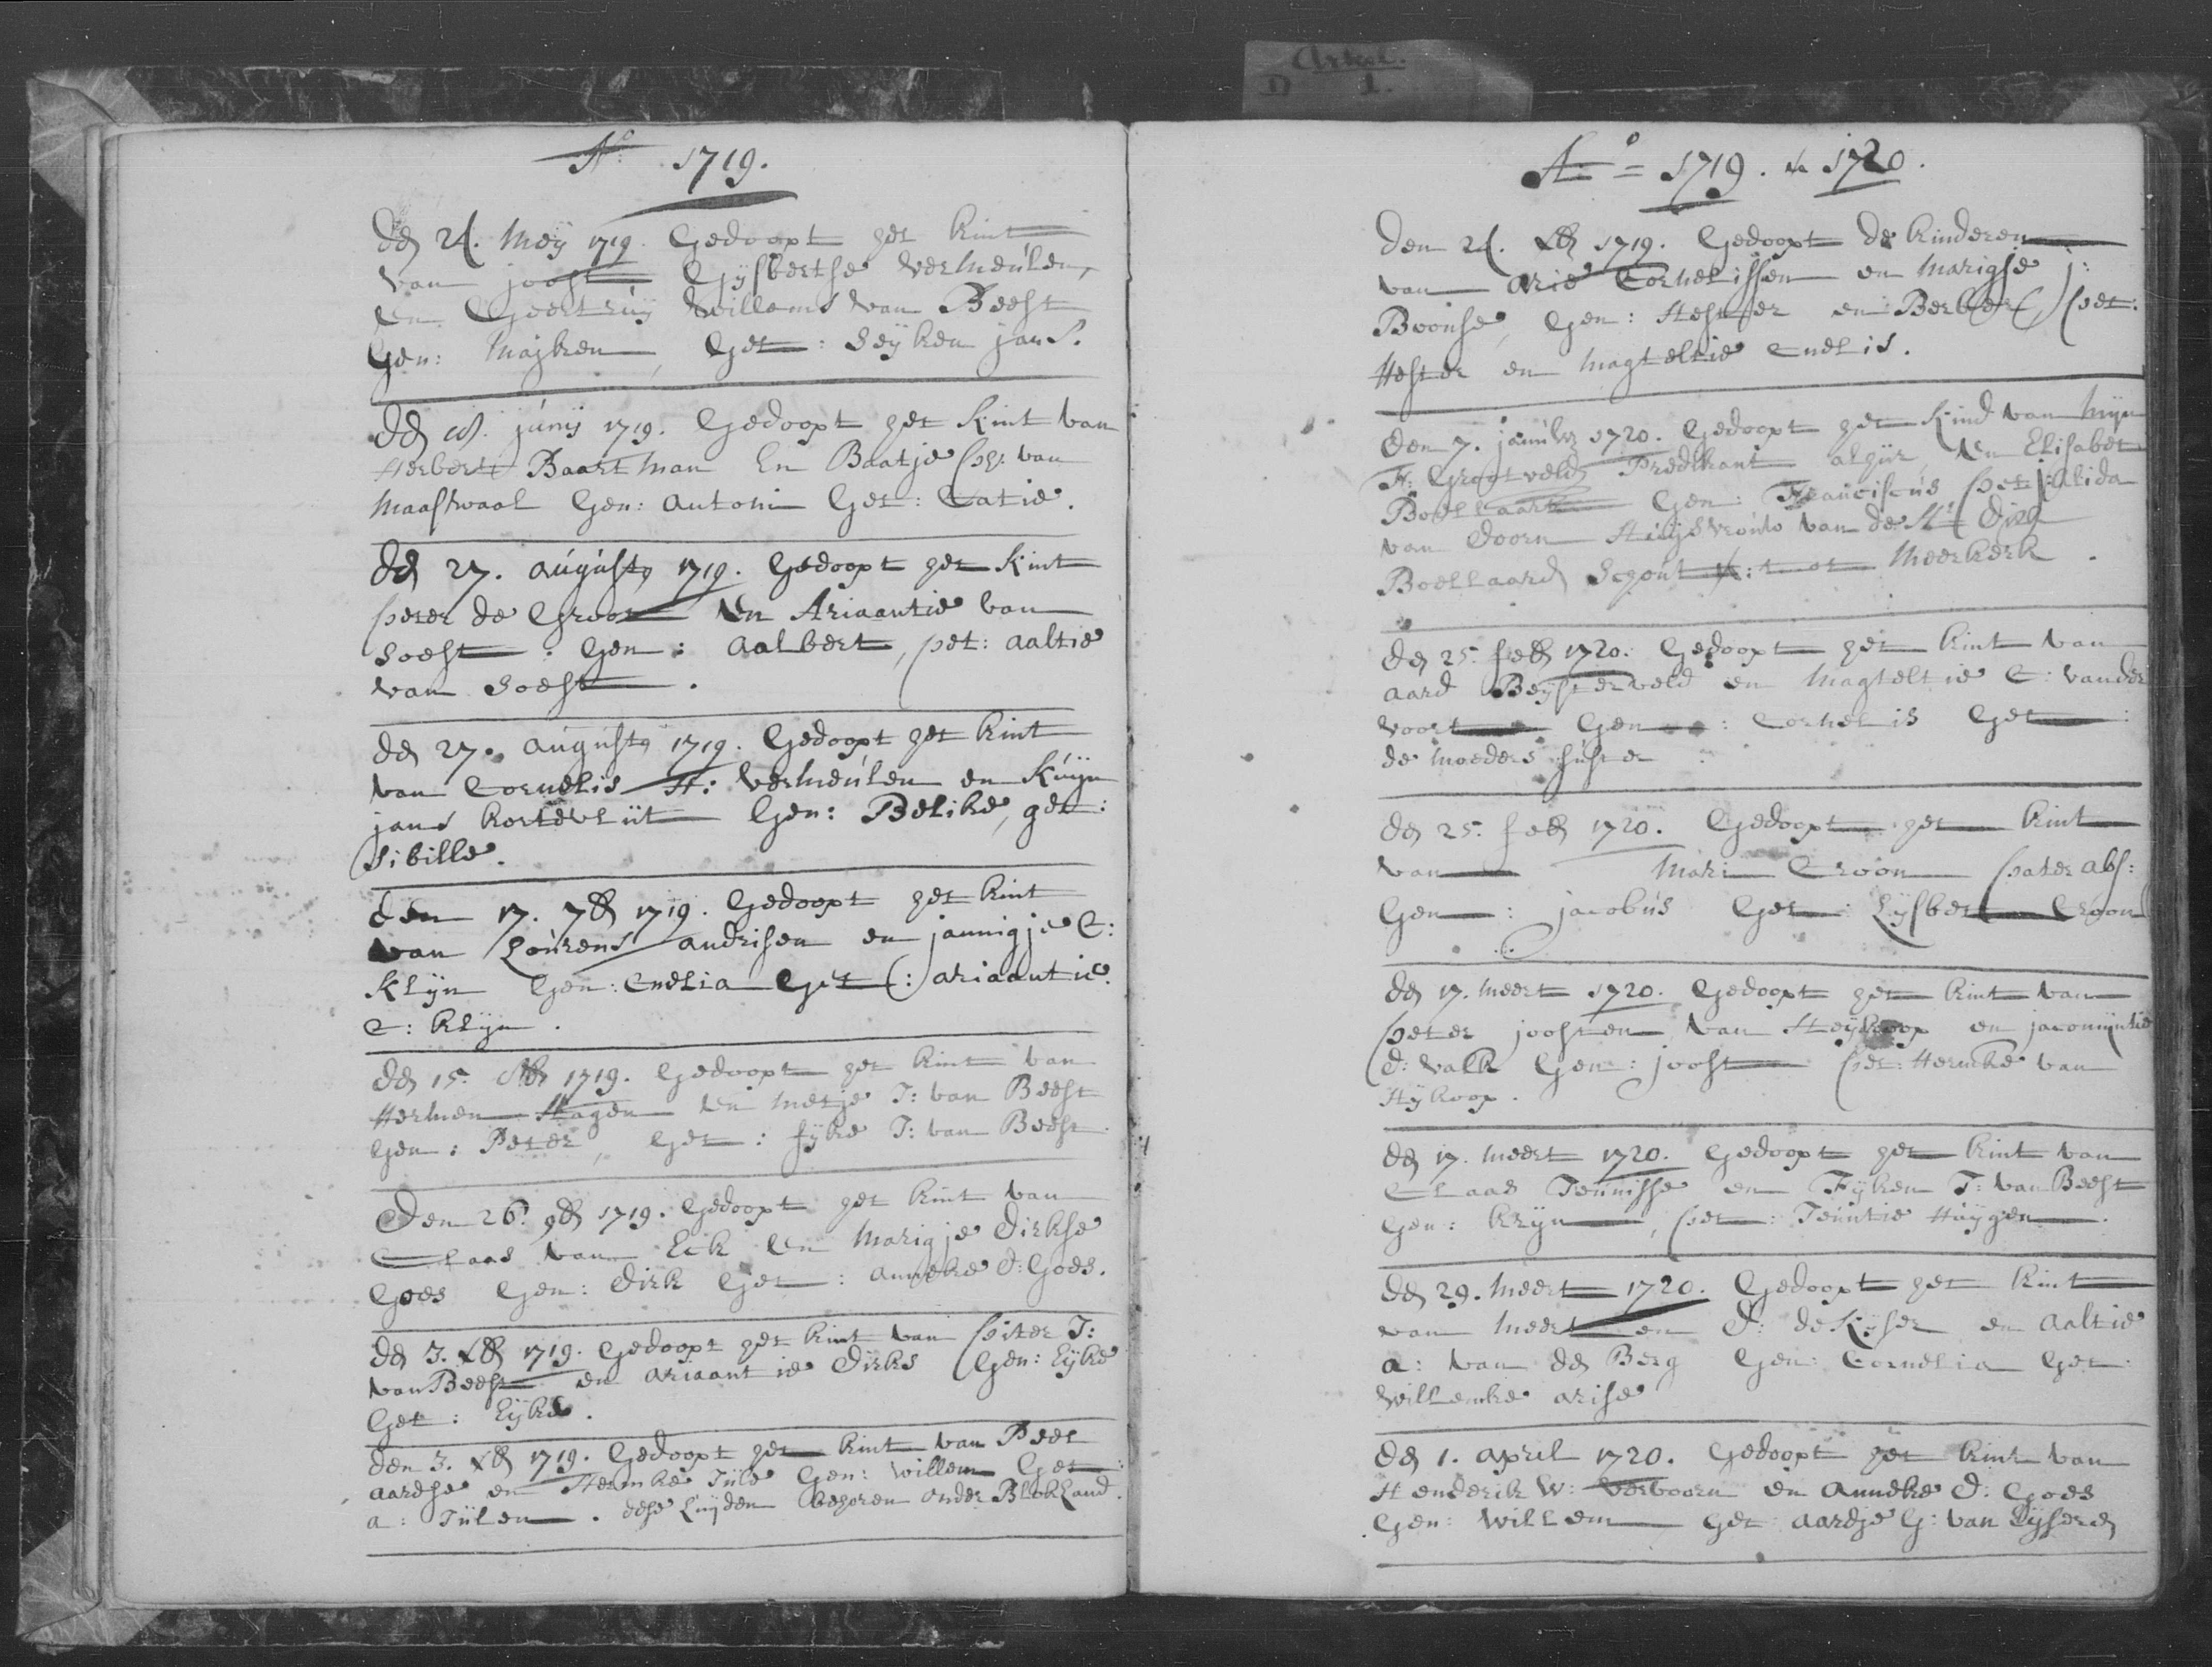 Arkel.
D 1.
Aº 1719.
den 21. Meÿ 1719. Gedoopt het kint
van joost Gÿsbertse vermeúlen,
en Geertrúÿ Willems van Beest
Gen: Maÿken, Get: Seÿken jans.
den 18. júnÿ 1719. Gedoopt het kint van
Herbert Baartman En Baatje van
Maaswaal Gen: Antoni Get: Catie.
den 27. aúgústÿ 1719. Gedoopt het kint
Peter de Groot en Ariaantie van
Soest. Gen: Aalbert, Get: aaltie
van Soest.
den 27. aúgústÿ 1719. Gedoopt het kint
van Cornelis H: vermeúlen en Kúÿn
jans kortevliit Gen: Belike, get:
Sibille.
den 17. 7b 1719. Gedoopt het kint
van Loúrens andrisen en jannigje C:
Klÿn Gen: Cnelia Get: ariaantie
C: klÿn.
den 15. 8b 1719. Gedoopt het kint van
Hermen Hagen en Metje T: van Beest
Gen: Peter, Get: fÿke T: van Beest.
Den 26. 9b 1719. Gedoopt het kint van
Claas van Eck en Marigje Dirkse
Goes Gen: Dirk Get: Anneke D: Goes.
den 3. Xb 1719. Gedoopt het kint van Piter T:
van Beest en ariaantie Dirks Gen: Eÿke
Get: Eÿke.
den 3. Xb 1719. Gedoopt het kint van Peet
aardse en Hermke Túle Gen: Willem Get:
a: Túlen. dese Luÿden behoren onder Blokland.
Aº = 1719. en 1720.
den 21. Xb 1719. Gedoopt de kinderen
van Arie Cornelissen en Marigse j:
Boonse, Gen: Hester en Berber, Get:
Hester en Magteltie Cnelis.
den 7. janúw 1720. Gedoopt het kind van Mÿn
F: Grootveld Predikant alhier en Elisabet
Boellaart Gen: Franciscús Get: Alida
van Doorn Húÿsvrouw van de Hr Dirk
Boellaard Schout tot Meerkerk.
den 25. feb 1720. Gedoopt het kint van
aard Beÿsterveld en Magteltie C: vander
voort Gen: Cornelis Get:
de moeders súster
den 25. feb 1720. Gedoopt het kint
van Mari Croon pater abs:
Gen: jacobús Get: Lÿsbet Croon
den 17. Meert 1720. Gedoopt het kint van
Peter joosten van Heÿkoop en jacomÿntie
d: valk Gen: joost Get: Hermke van
Hÿkoop.
den 17. Meert 1720. Gedoopt het kint van
Claas Teúnisse en Fÿken T: van Beest
Gen: krÿn, Get: Teúntie Húÿgen.
den 29. Meert 1720. Gedoopt het kint
van Meerten D: de Kÿser en Aaltie
a: van den Berg Gen: Cornelia Get:
Willemke arise
den 1. April 1720. Gedoopt het kint van
Henderik W: Verboorn en Anneke D: Goes
Gen: Willem Get: Aardje G: van Eÿseren